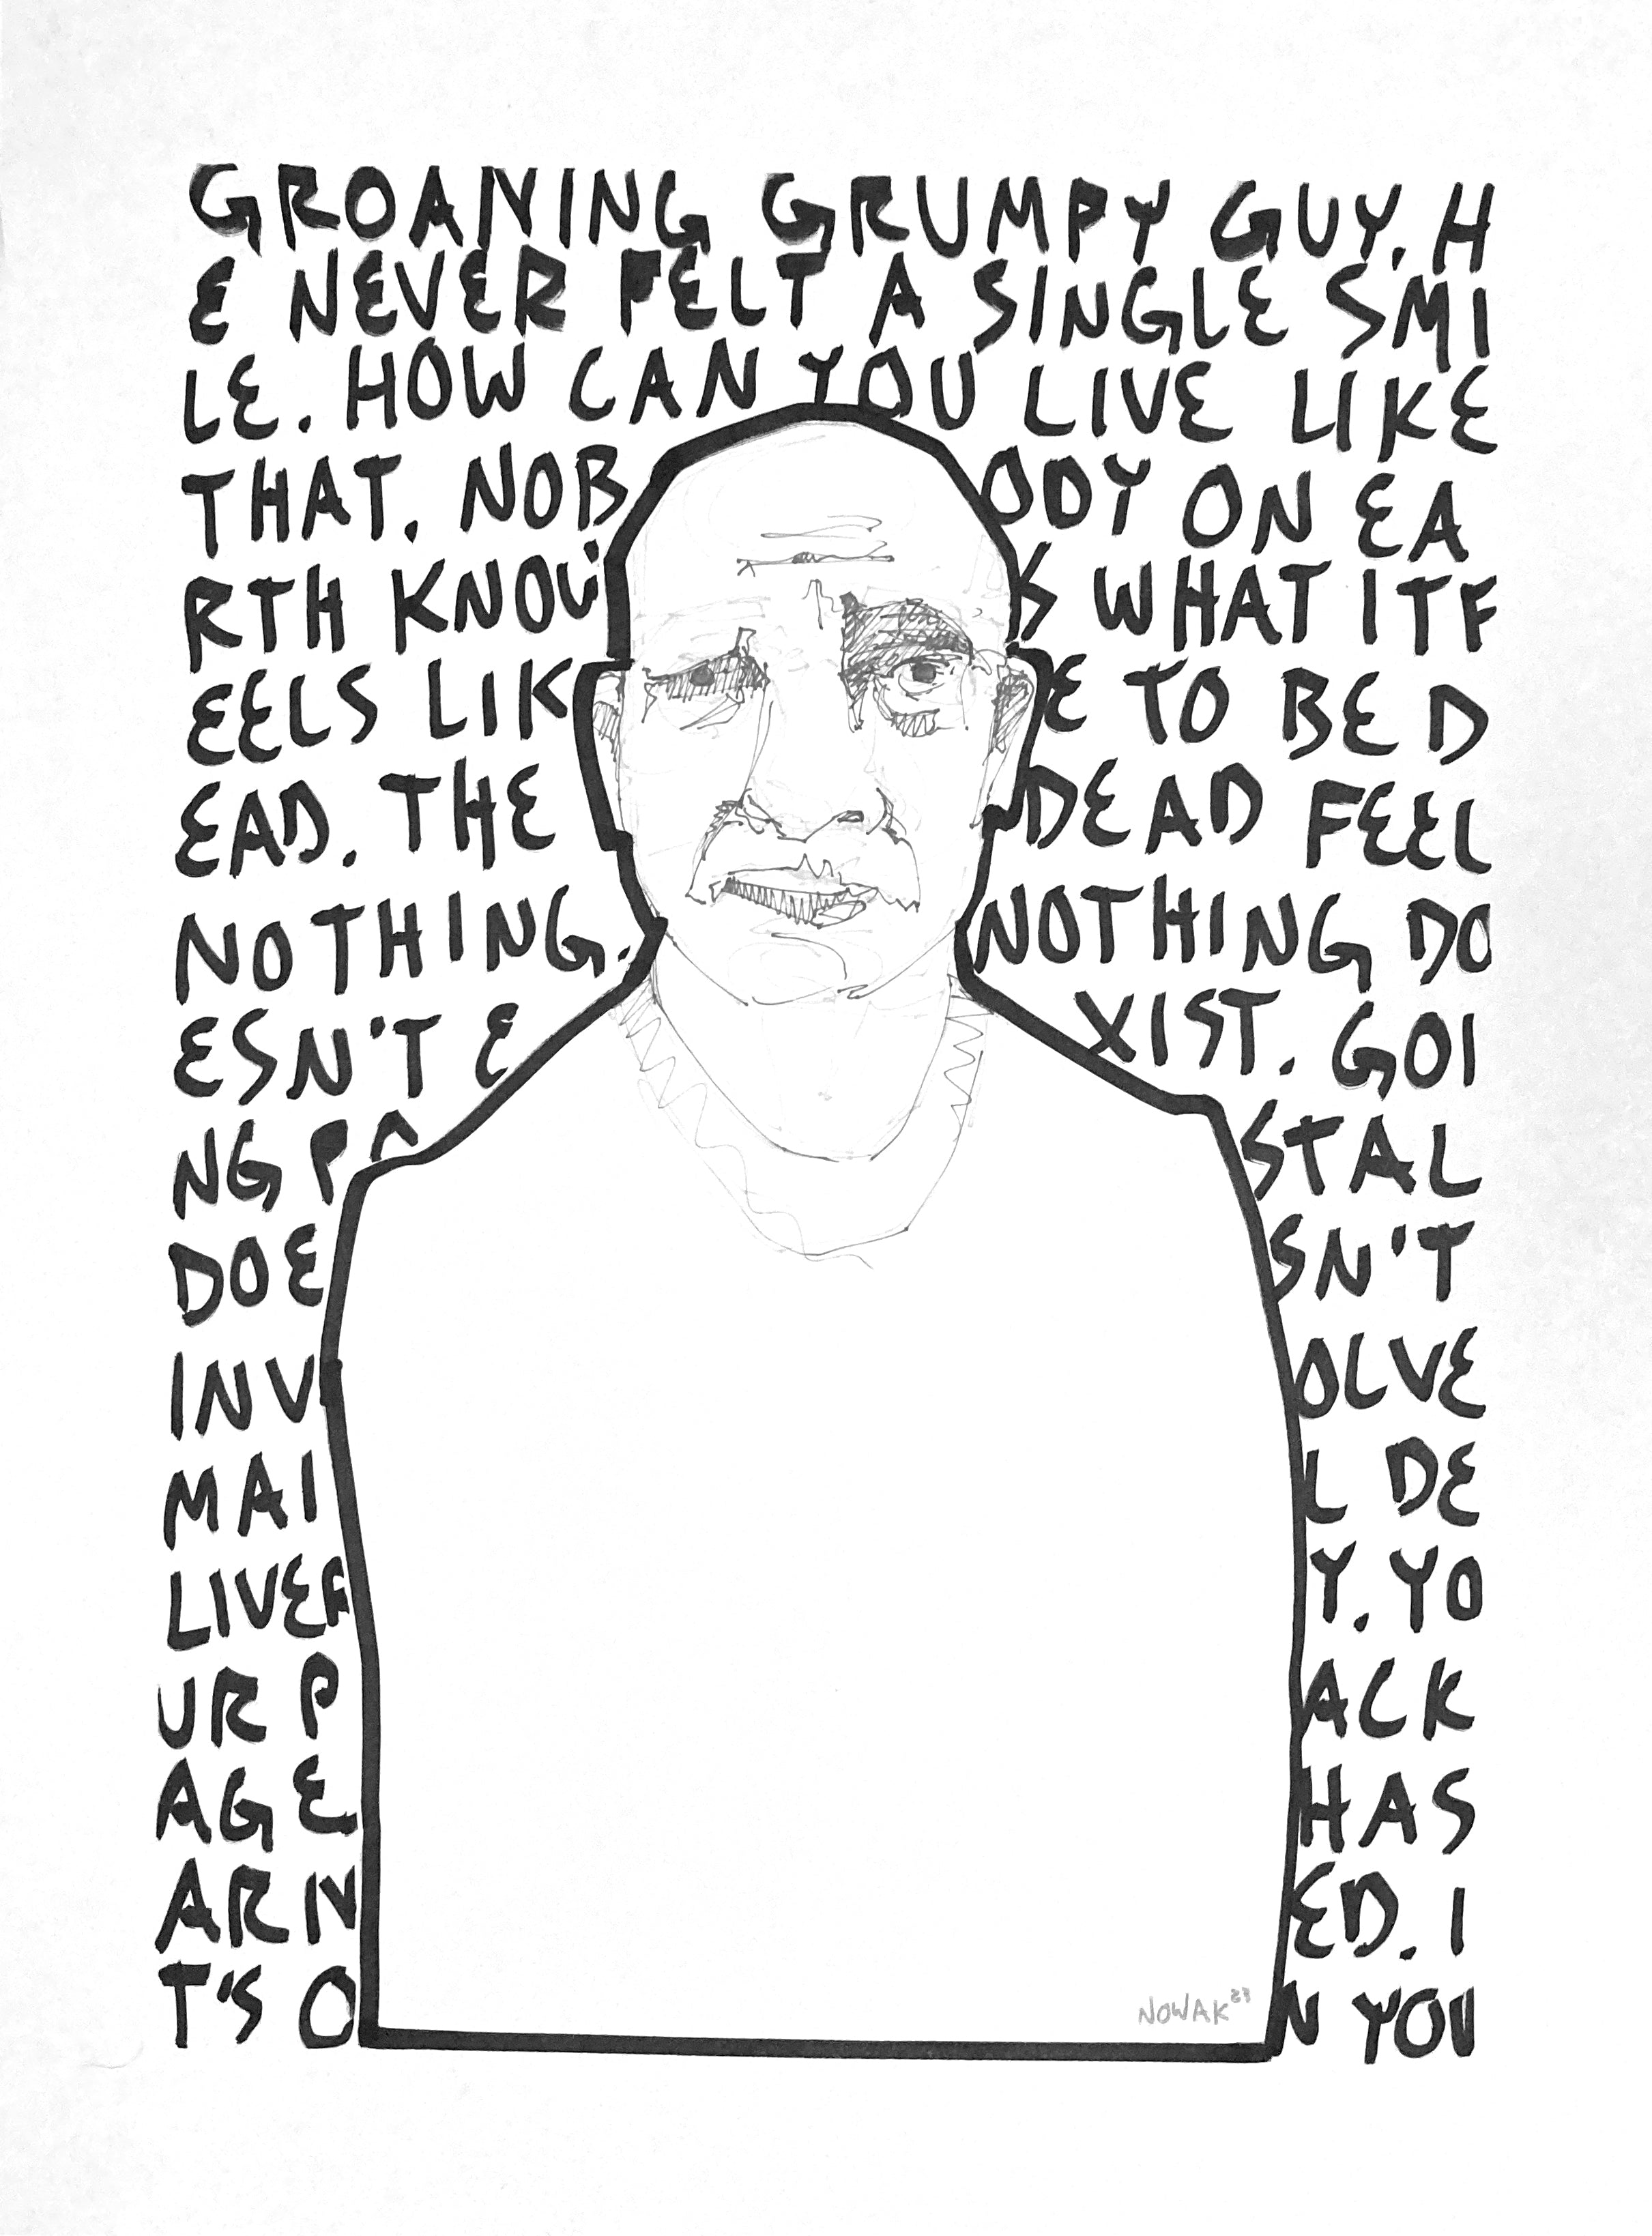 GROANING GRUMPY GUY. H
E NEVER FELT A SINGLE SMI
LE. HOW CAN YOU LIVE LIKE
THAT. NOB ODY ON EA
RTH KNOW S WHAT IT F
EELS LIK E TO BE D
EAD. THE DEAD FEEL
NOTHING. NOTHING DO
ESN'T E XIST. GOI
NG PO STAL
DOE SN'T
INV OLVE
MAI L DE
LIVER Y. YO
UR P ACK
AGE HAS
ARN ED. I
T'S O N YOU
NOWAK 23